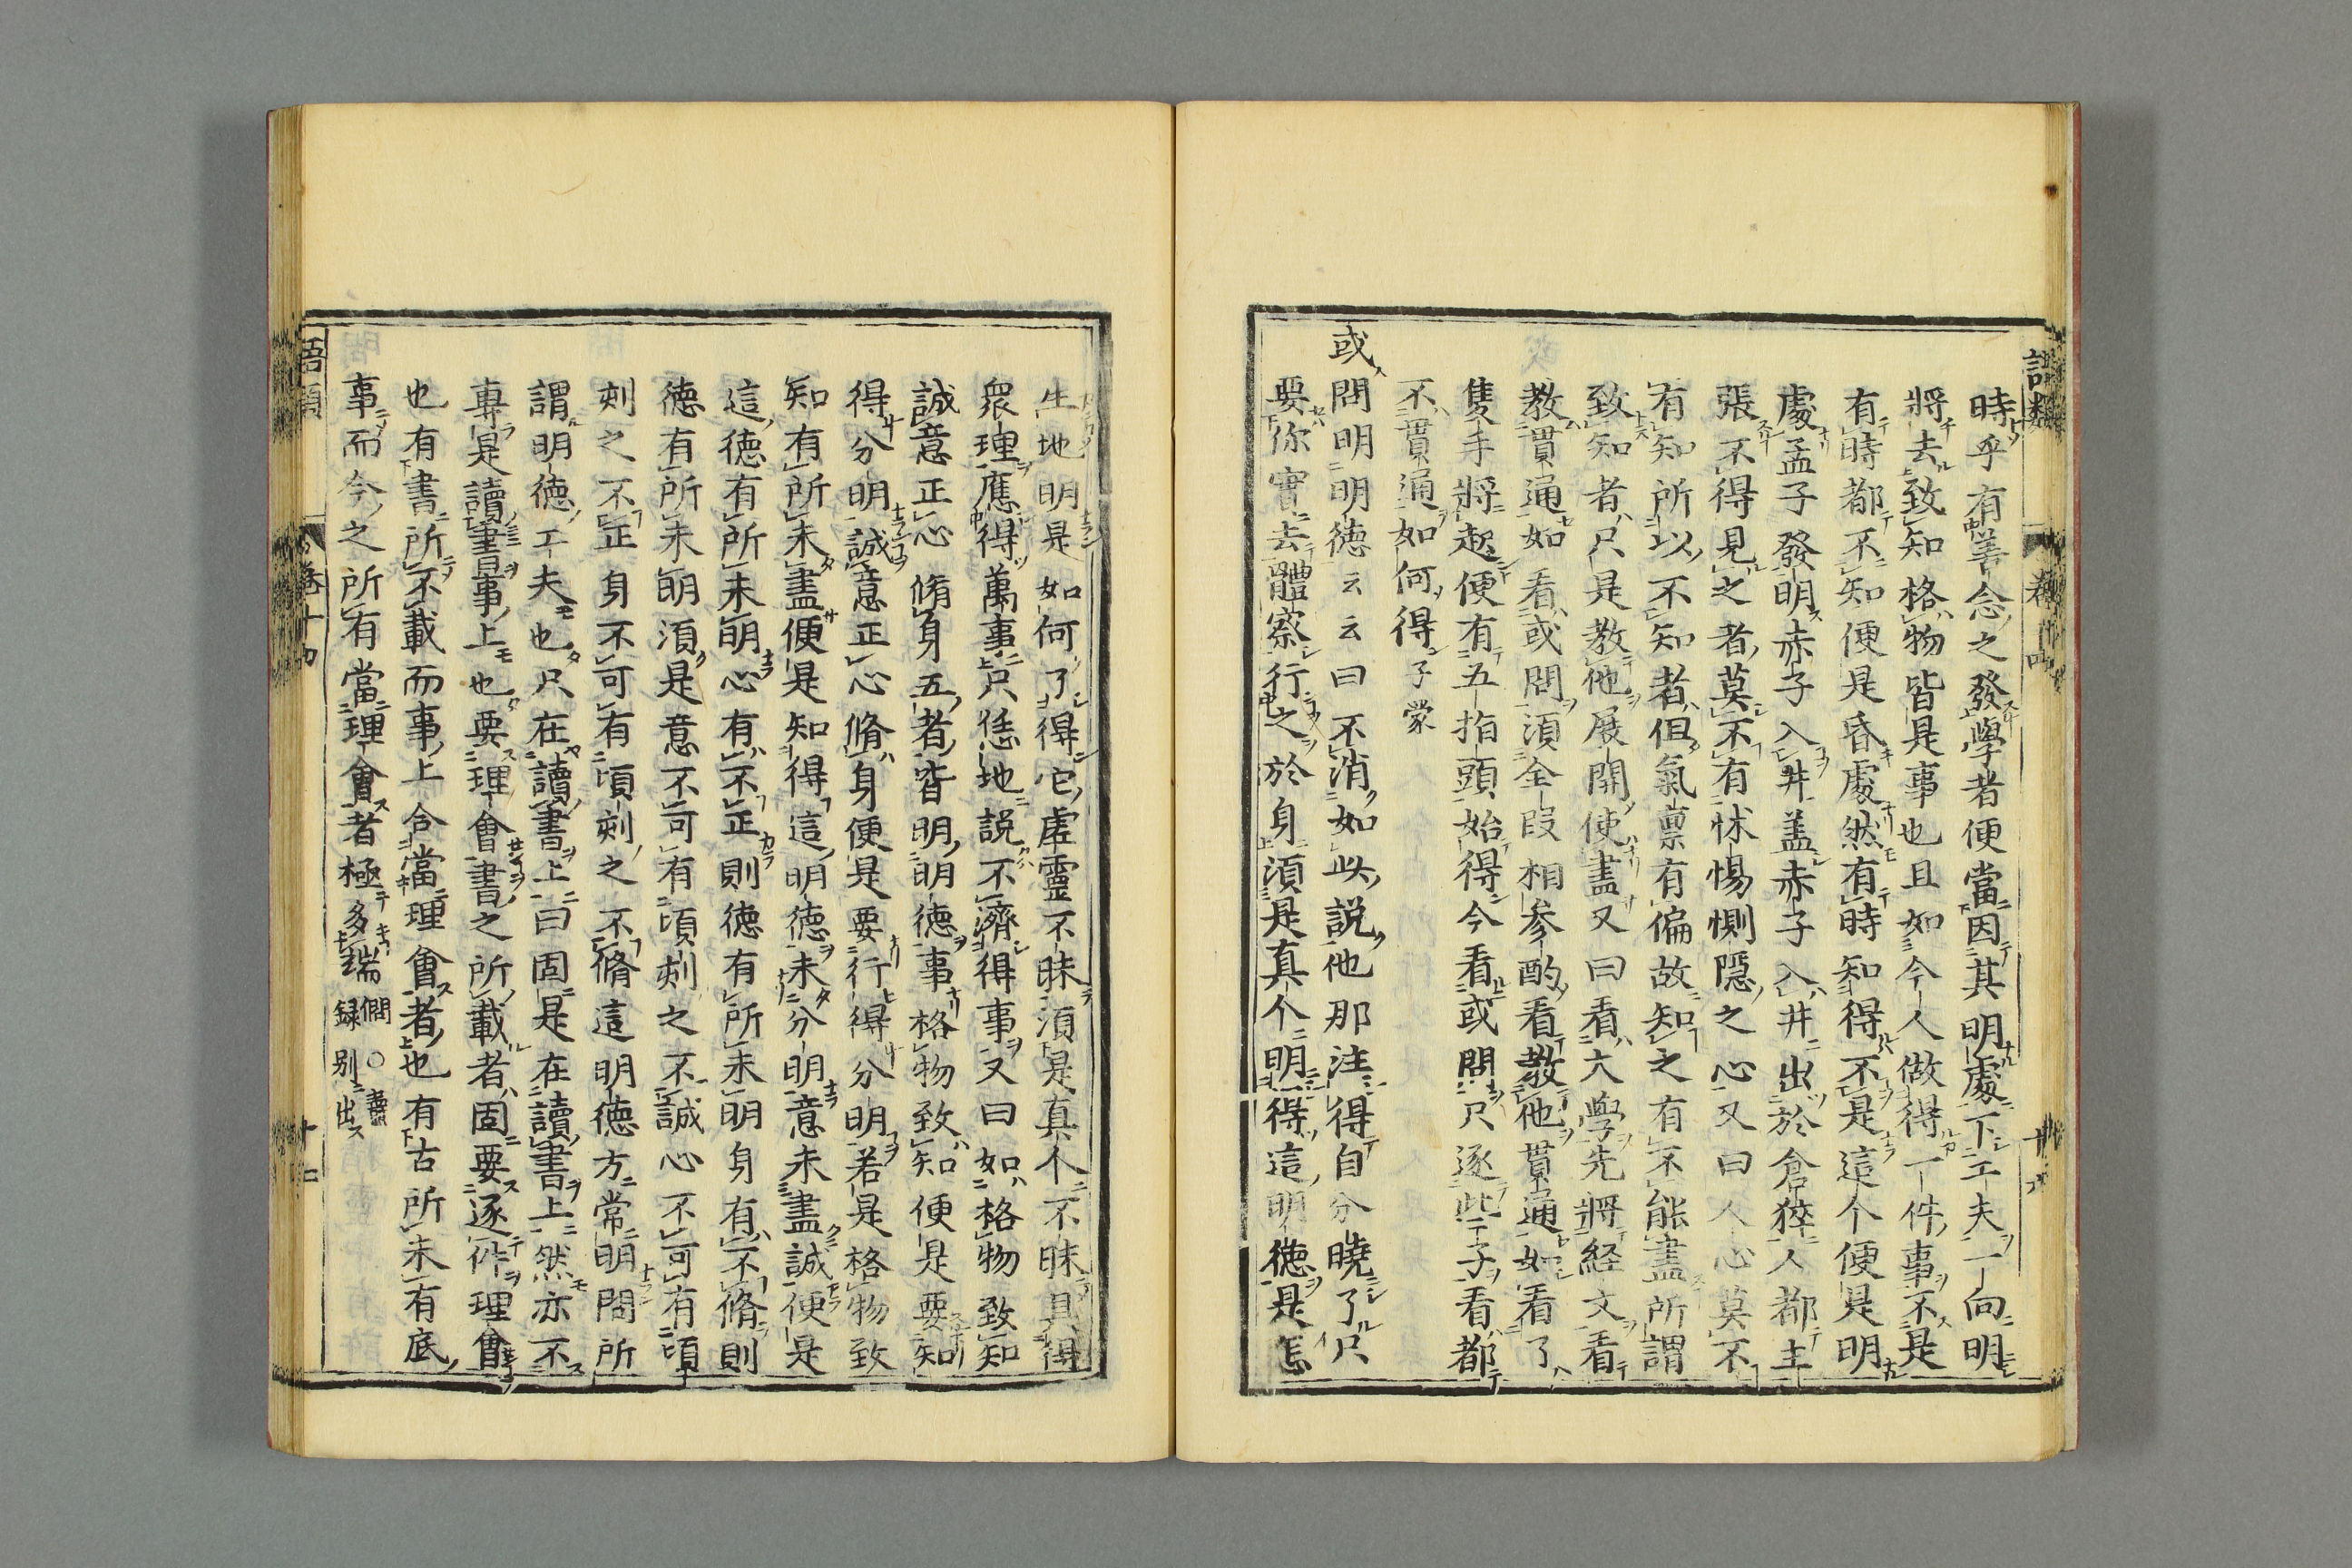 時乎有善念之發學者便當因其明處下工夫一向明
將去致知格物皆是事也且如今人做得一件事不是
有時都不知便是昏處然有時知得不是這个便是明
處孟子發明赤子入井盖赤子入井出於倉猝人都主
張不得見之者莫不有怵惕惻隱之心又曰人心莫不
有知所以不知者但氣禀有偏故知之有不能盡所謂
致知者只是教他展開使盡又曰看大學先將経文看
教貫通如看或問湏全段相参酌看教他貫通如看了
隻手將起便有五指頭始得今看或問只逐些子看都
不貫通如何得子蒙
或問明明徳云云曰不消如此說他那注得自分曉了只
要你實去體察行之於身湏是真个明得這明徳是怎
生地明是如何了得它虛靈不昧湏是真个不昧具得
衆理應得萬事只恁地説不濟得事又曰如格物致知
誠意正心脩身五者皆明明徳事格物致知便是要知
得分明誠意正心脩身便是要行得分明若是格物致
知有所未盡便是知得這明徳未分明意未盡誠便是
這徳有所未明心有不正則徳有所未明身有不脩則
徳有所未明湏是意不可有頃刻之不誠心不可有頃
刻之不正身不可有頃刻之不脩這明徳方常明問所
謂明徳工夫也只在讀書上曰固是在讀書上然亦不
專是讀書事上也要理會書之所載者固要逐件理會
也有書所不載而事上合當理會者也有古所未有底
事而今之所有當理會者極多端僩○燾
録别出
語類
卷十四
十六
語類
卷十四
十七